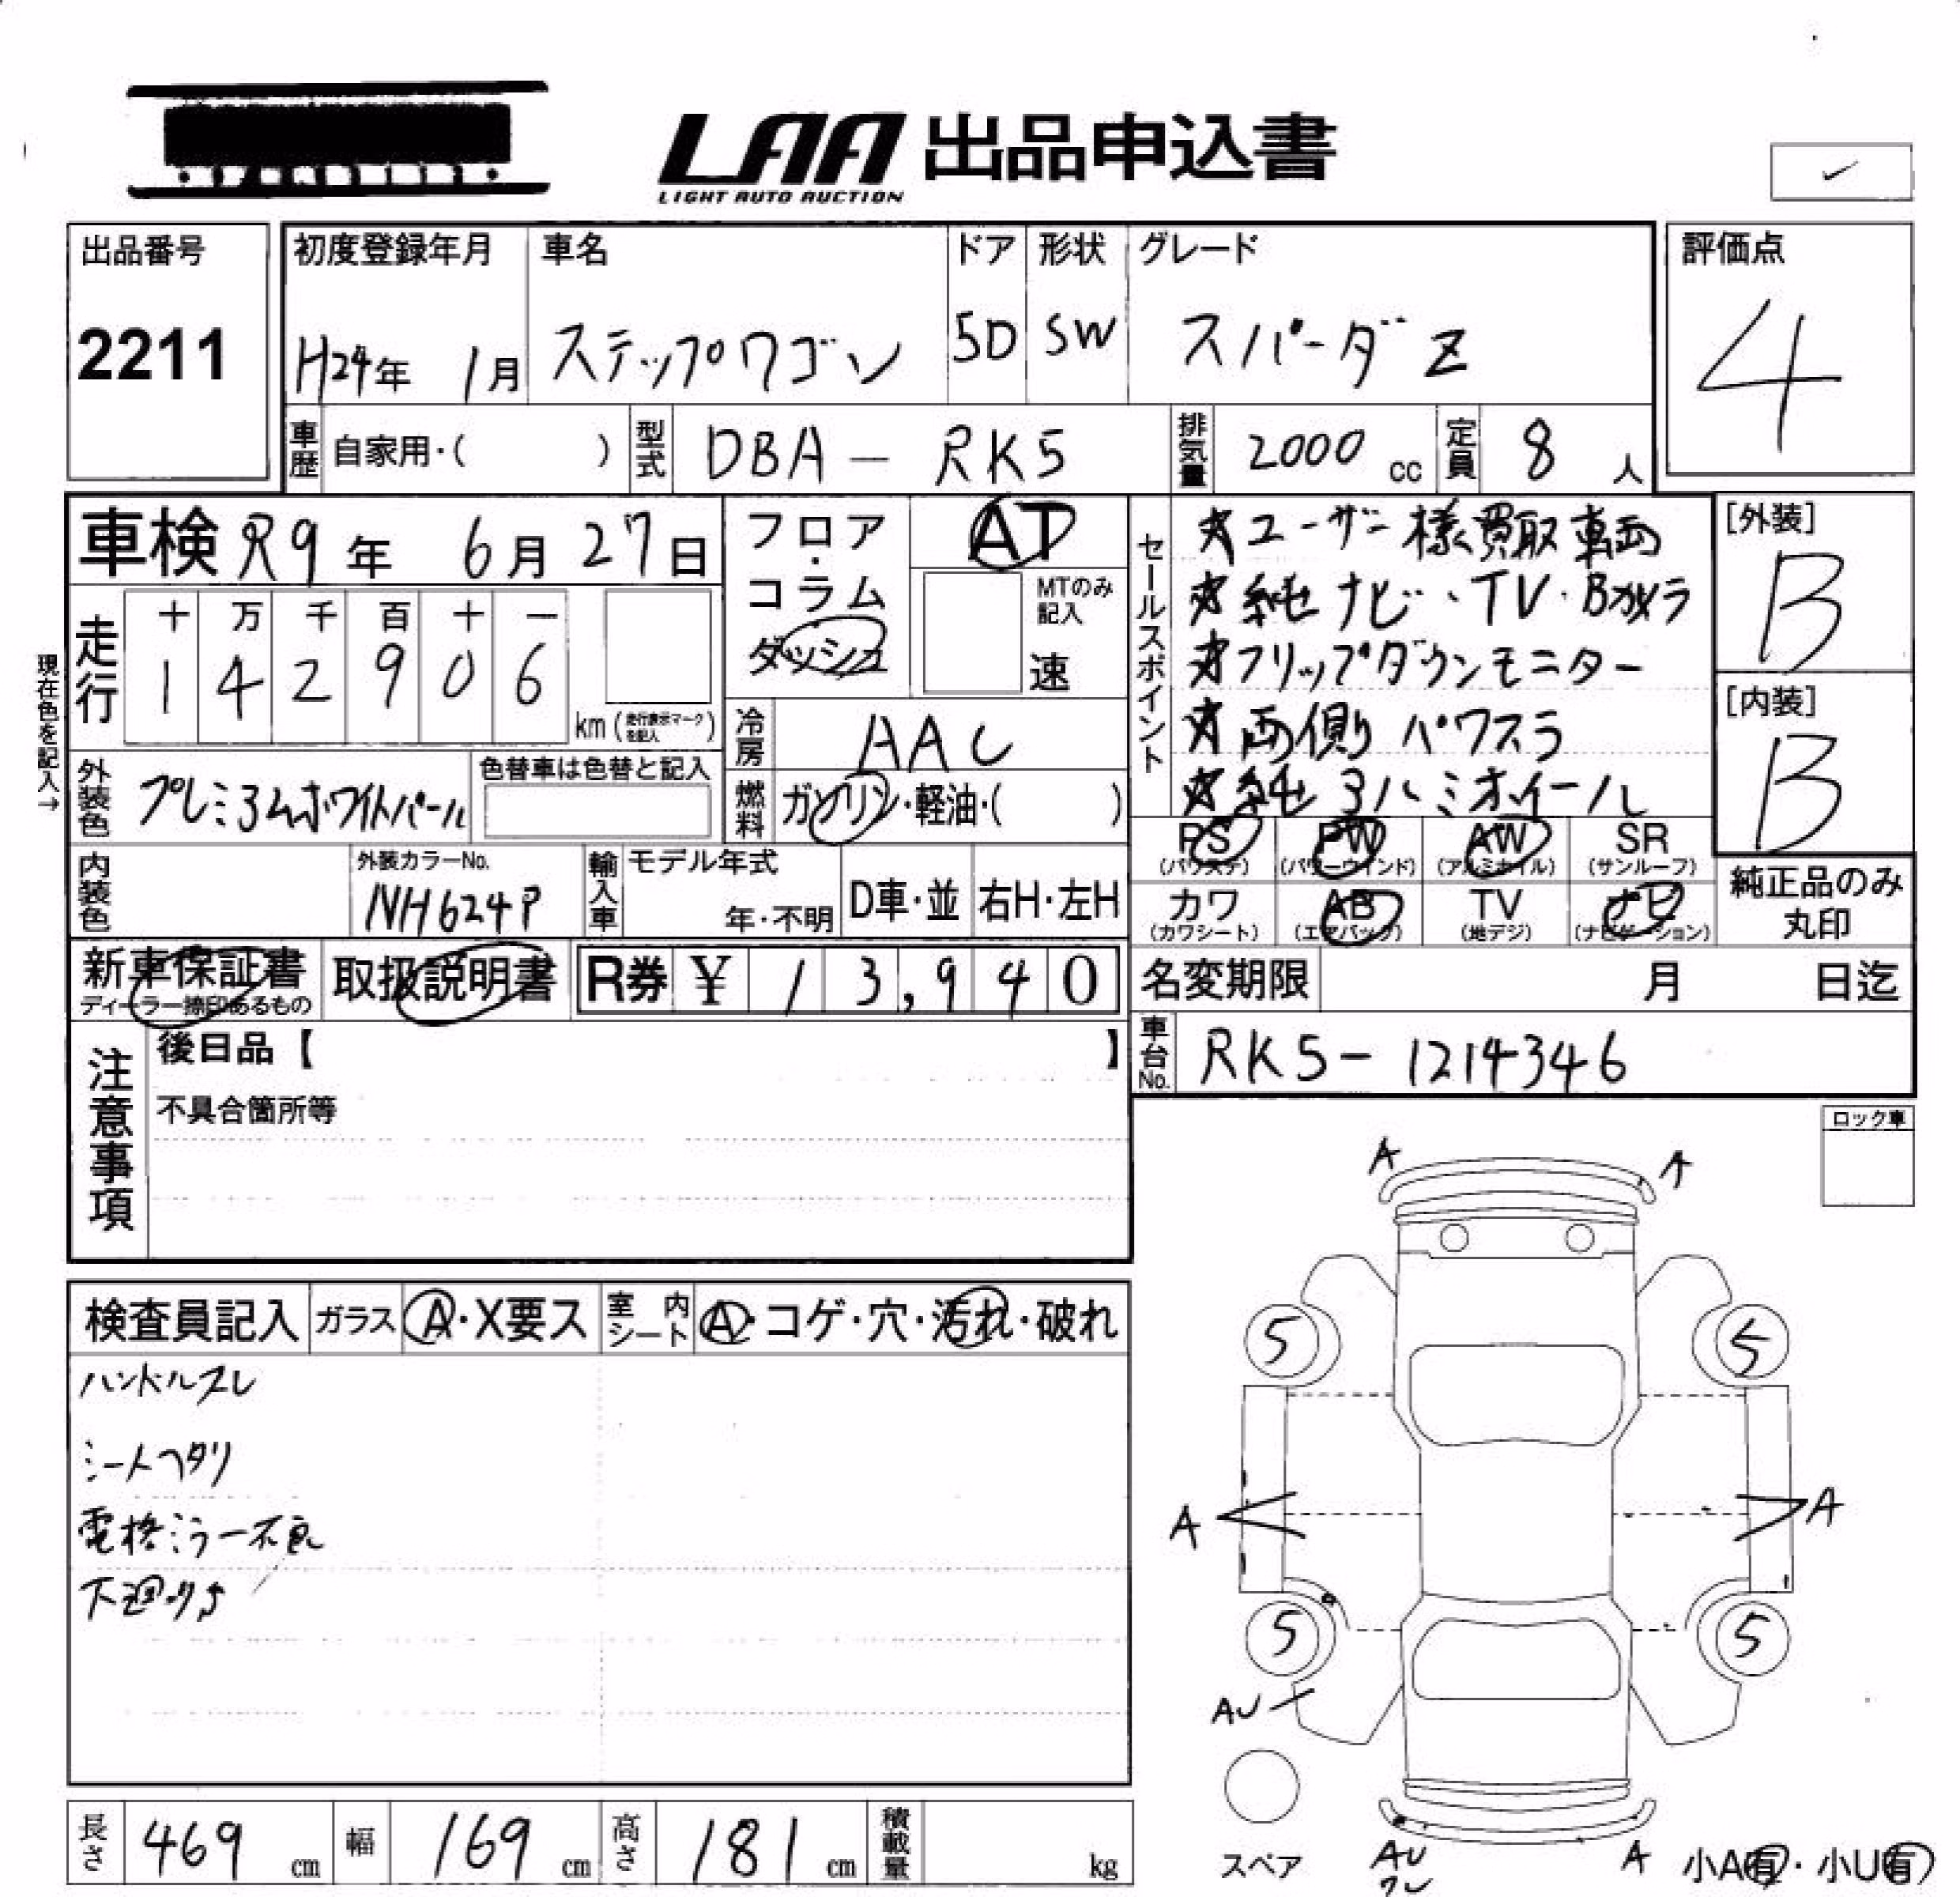 LAA 出品申込書
LIGHT AUTO AUCTION
出品番号
2211
初度登録年月
H24年 1月
車名
ステップワゴン
ドア
5D
形状
SW
グレード
スパーダZ
評価点
4
車歴
自家用・( )
型式
DBA - RK5
排気量
2000 cc
定員
8 人
車検 R9年 6月 27日
走行
十 万 千 百 十 一
1 4 2 9 0 6
km (走行表示マークを記入)
現在色を記入→
フロア・コラム
ダッシュ
AT
MTのみ記入
速
冷房
AAC
燃料
ガソリン・軽油・( )
外装色
プレミアムホワイトパール
色替車は色替と記入
内装色
外装カラーNo.
NH624P
輸入車
モデル年式
年・不明
D車・並
右H・左H
セールスポイント
★ユーザー様買取車両
★純正ナビ・TV・Bカメラ
★フリップダウンモニター
★両側パワスラ
★純正アルミホイール
[外装]
B
[内装]
B
PS (パワステ)
PW (パワーウインド)
AW (アルミホイル)
SR (サンルーフ)
カワ (カワシート)
AB (エアバック)
TV (地デジ)
ナビ (ナビゲーション)
純正品のみ丸印
新車保証書
ディーラー捺印あるもの
取扱説明書
R券 ¥ 13,940
名変期限 月 日迄
車台No.
RK5-1214346
注意事項
後日品【 】
不具合箇所等
ロック車
検査員記入
ガラス
A・X要ス
室内シート
A・コゲ・穴・汚れ・破れ
ハンドルスレ
シートヘタリ
電格ミラー不良
下廻りS
A
A
5
5
A
A
5
5
AU
スペア
AU
ワレ
A
小A有・小U有
長さ
469 cm
幅
169 cm
高さ
181 cm
積載量
kg